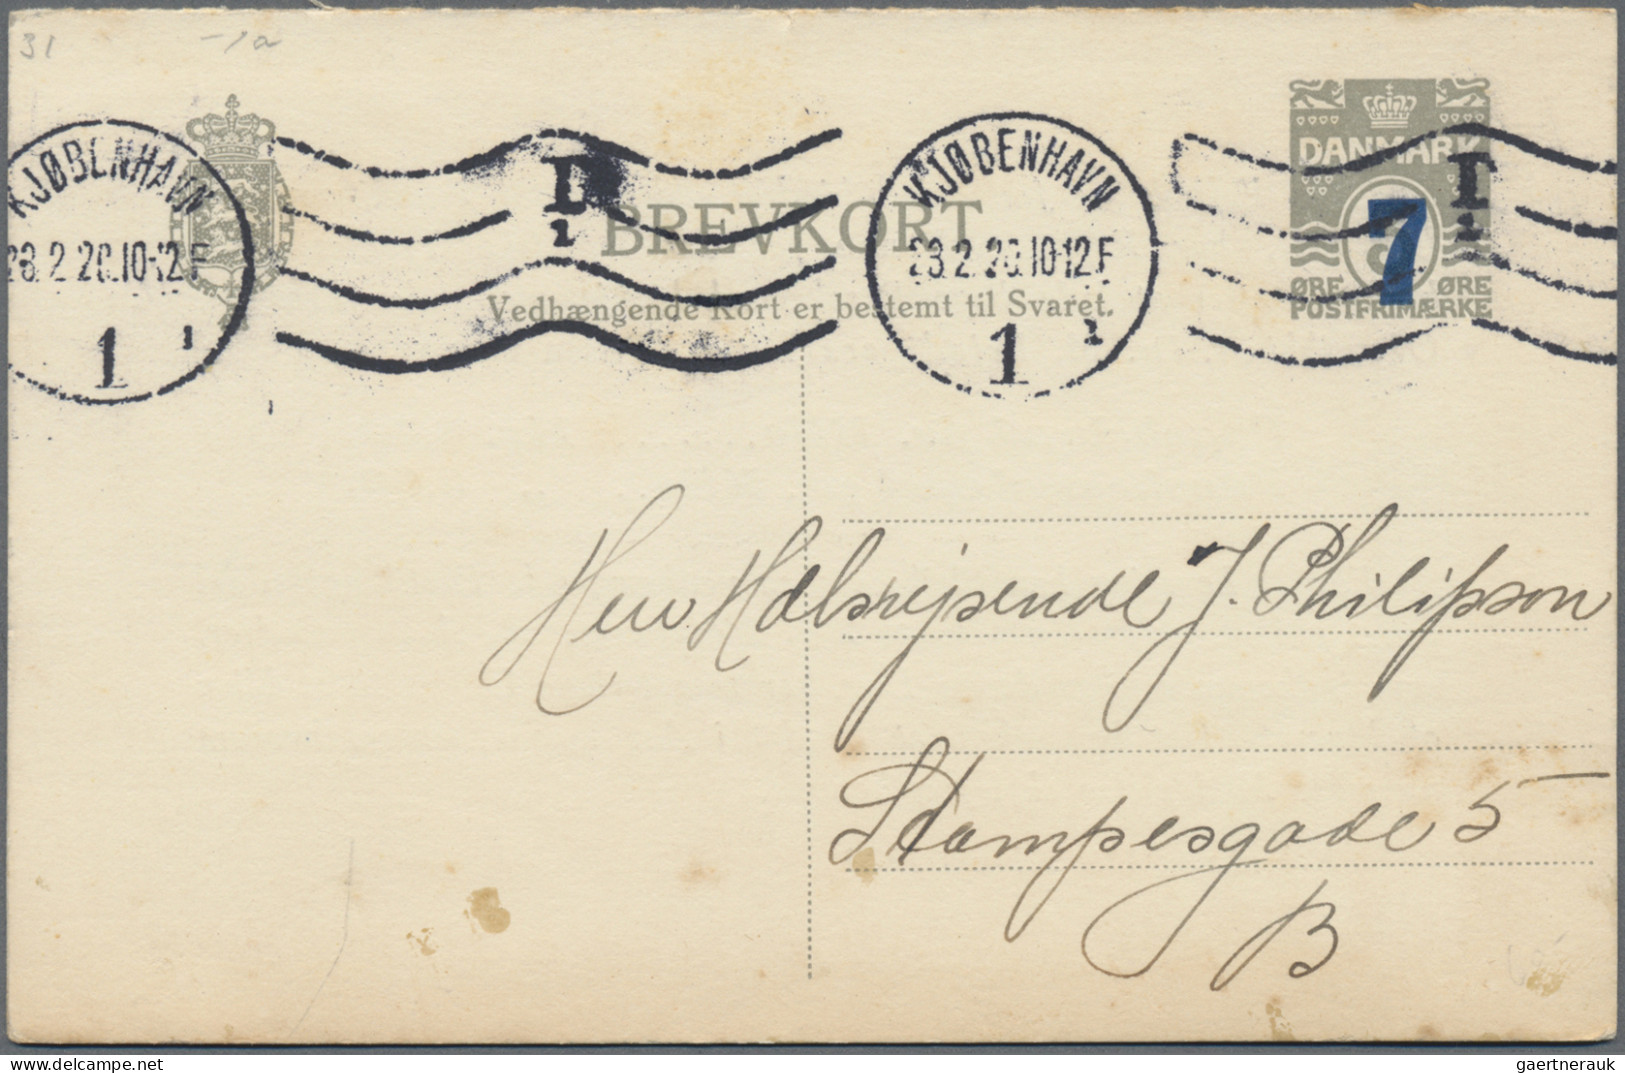 31 -/a
KJØBENHAVN
28.2.20.10-12F
1 1
KJØBENHAVN
28.2.20.10-12F
1 1
DANMARK
7
ØRE ØRE
POSTFRIMÆRKE
BREVKORT
Vedhængende Kort er bestemt til Svaret.
Herr Hdlsrejsende J. Philipson
Stampesgade 5
B
gaertnerauk